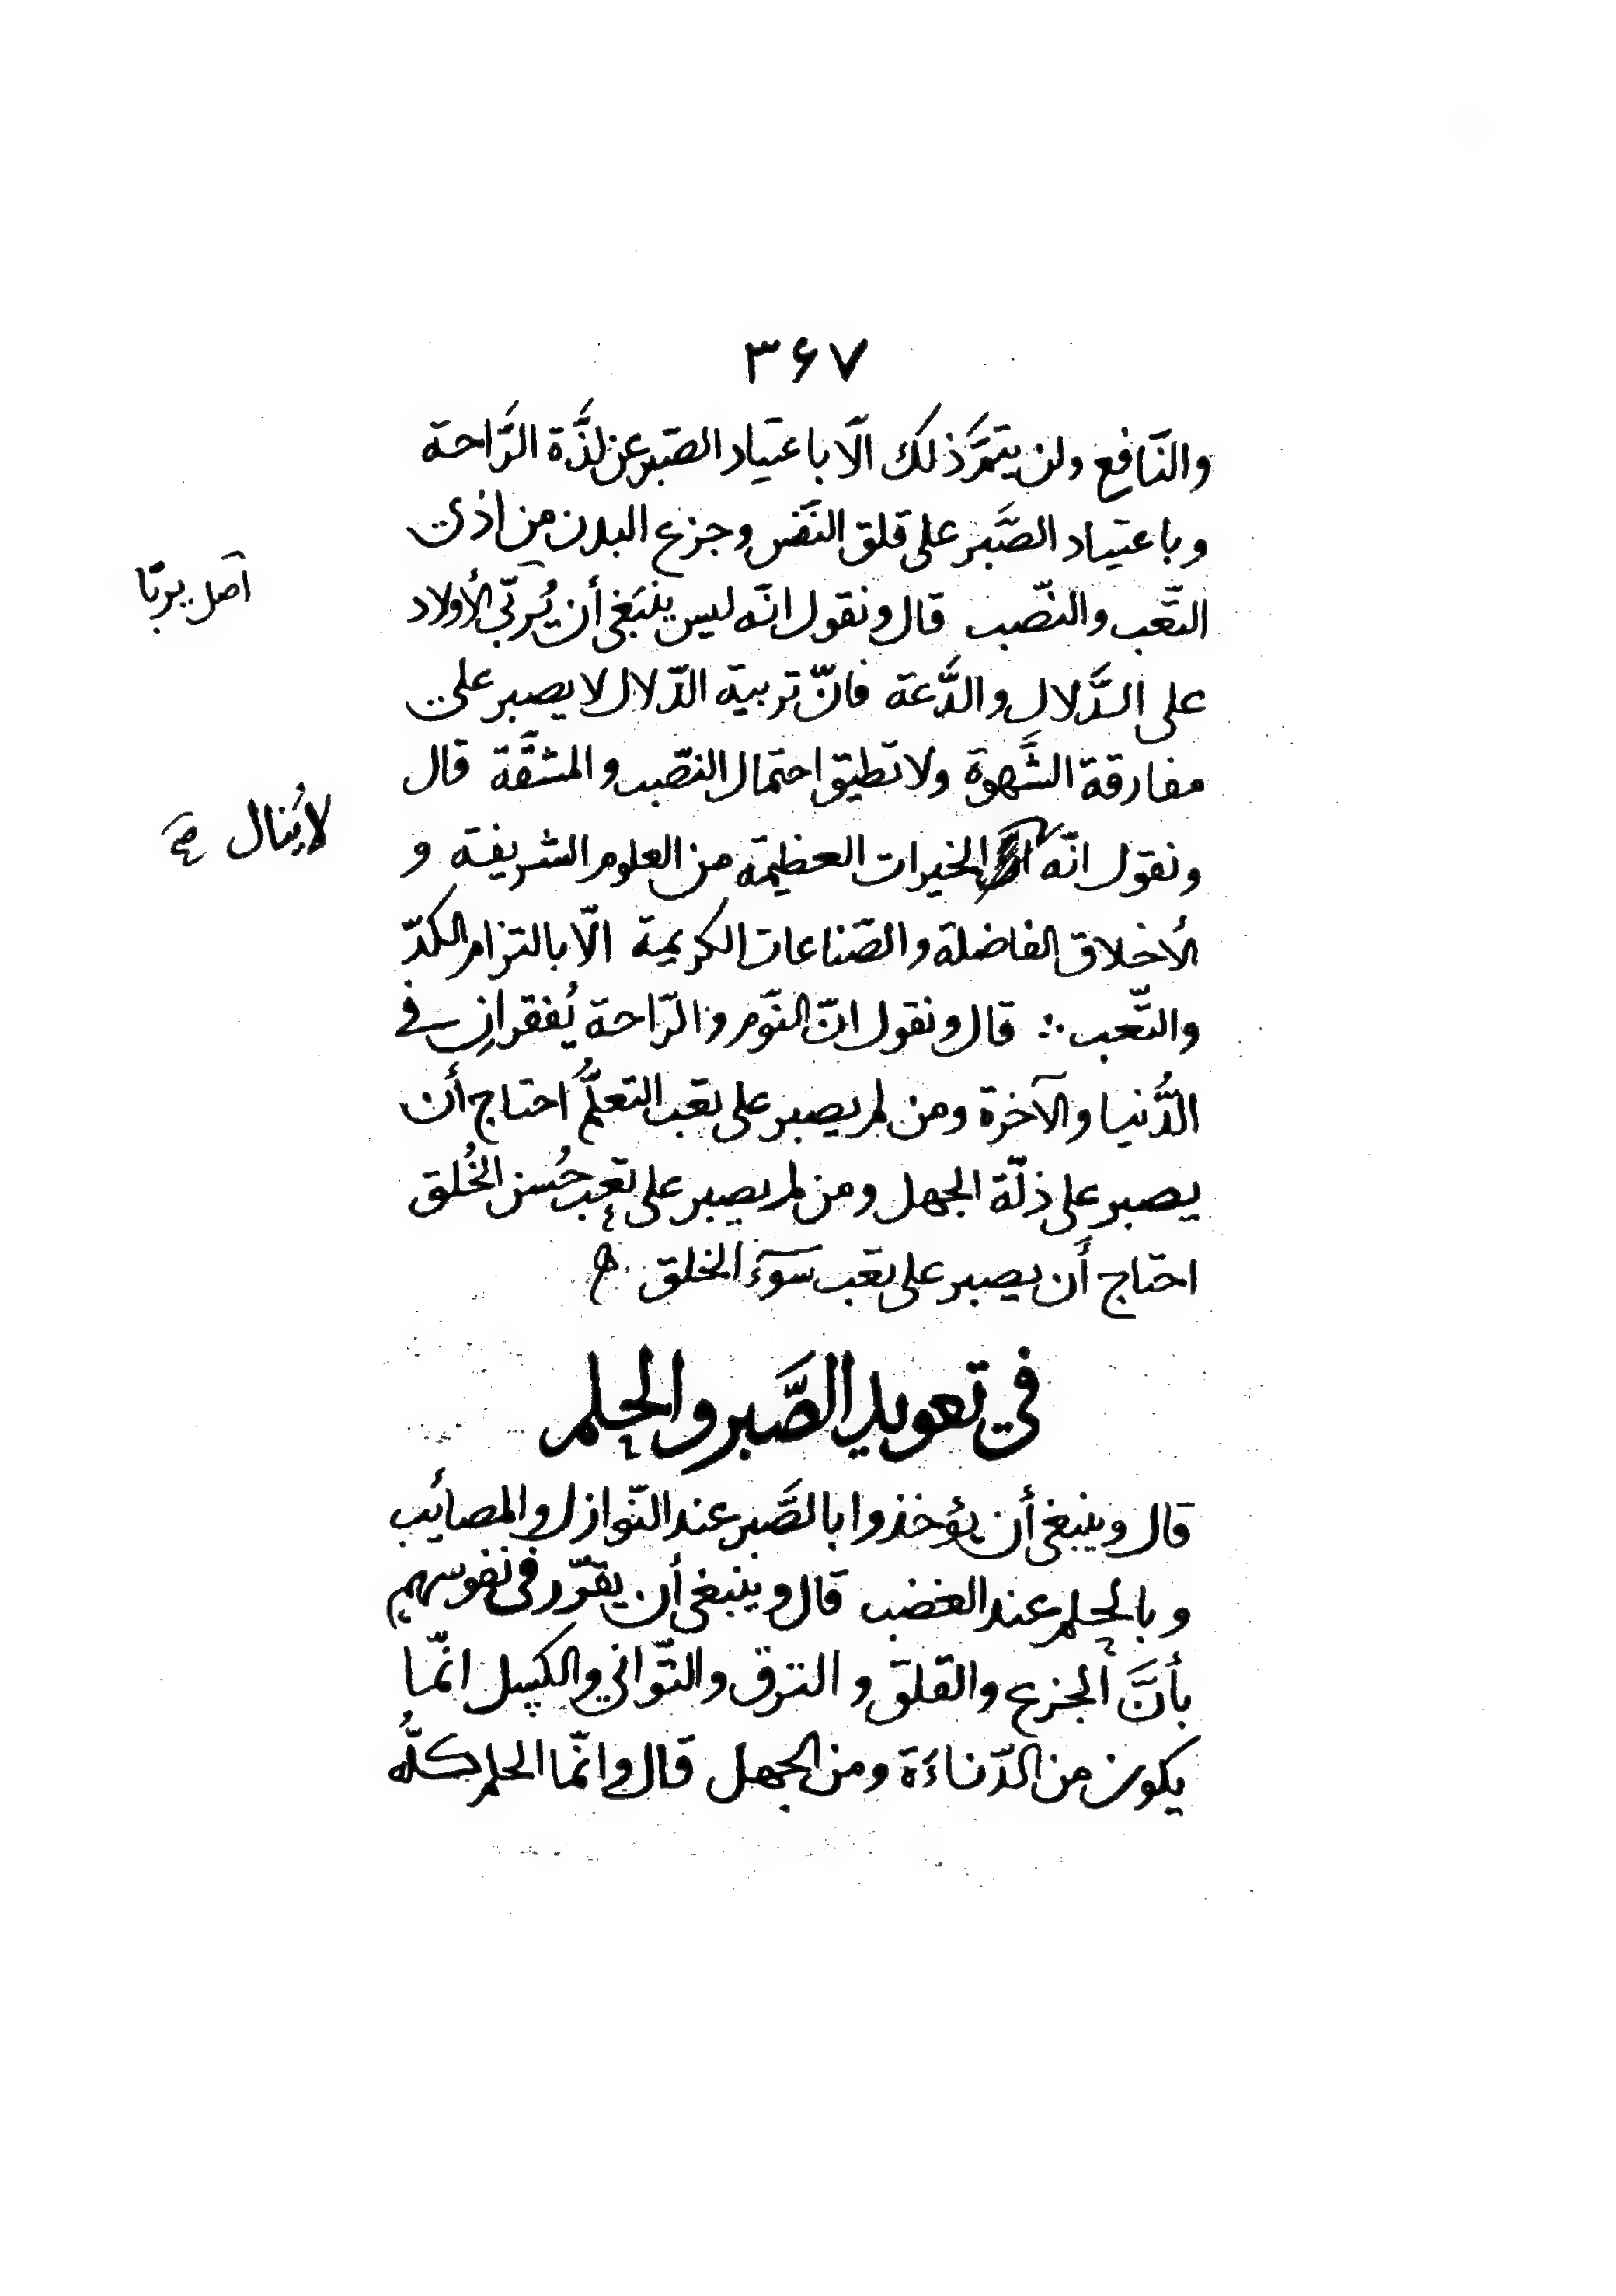 ۳۶۷
والنّافع ولن يتمّ ذلك الّا باعتياد الصّبر عن لذّة الرّاحة
وباعتياد الصّبر على قلق النّفس وجزع البدن من اذى
التّعب والنّصب قال ونقول انّه ليس ينبغي أن يُربّى الأولاد
آصل يربّا
على الدَّلال والدَّعة فانّ تربية الدّلال لا يصبر على
مفارقة الشَّهوة ولا تطيق احتمال النّصب والمشقّة قال
ونقول انّه الخيرات العظيمة من العلوم الشريفة و
لا يُنال
الأخلاق الفاضلة والصّناعات الكريمة الّا بالتزام الكدّ
والتّعب ∴ قال ونقول انّ النّوم والرّاحة يُفقران في
الدُّنيا والآخرة ومن لم يصبر على تعب التعلُّم احتاج أن
يصبر على ذلّة الجهل ومن لم يصبر على تعب حُسن الخُلق
احتاج أن يصبر على تعب سوَء الخلق
في تعويد الصَّبر والحلم
قال وينبغي أن يؤخذوا بالصَّبر عند النّوازل والمصائب
وبالحلم عند الغضب قال وينبغي أن يقرّر في نفوسهم
بأنَّ الجزع والقلق و النزق والتّواني والكسل انّما
يكون من الدّناءَة ومن الجهل قال وانّما الحلم كلّه